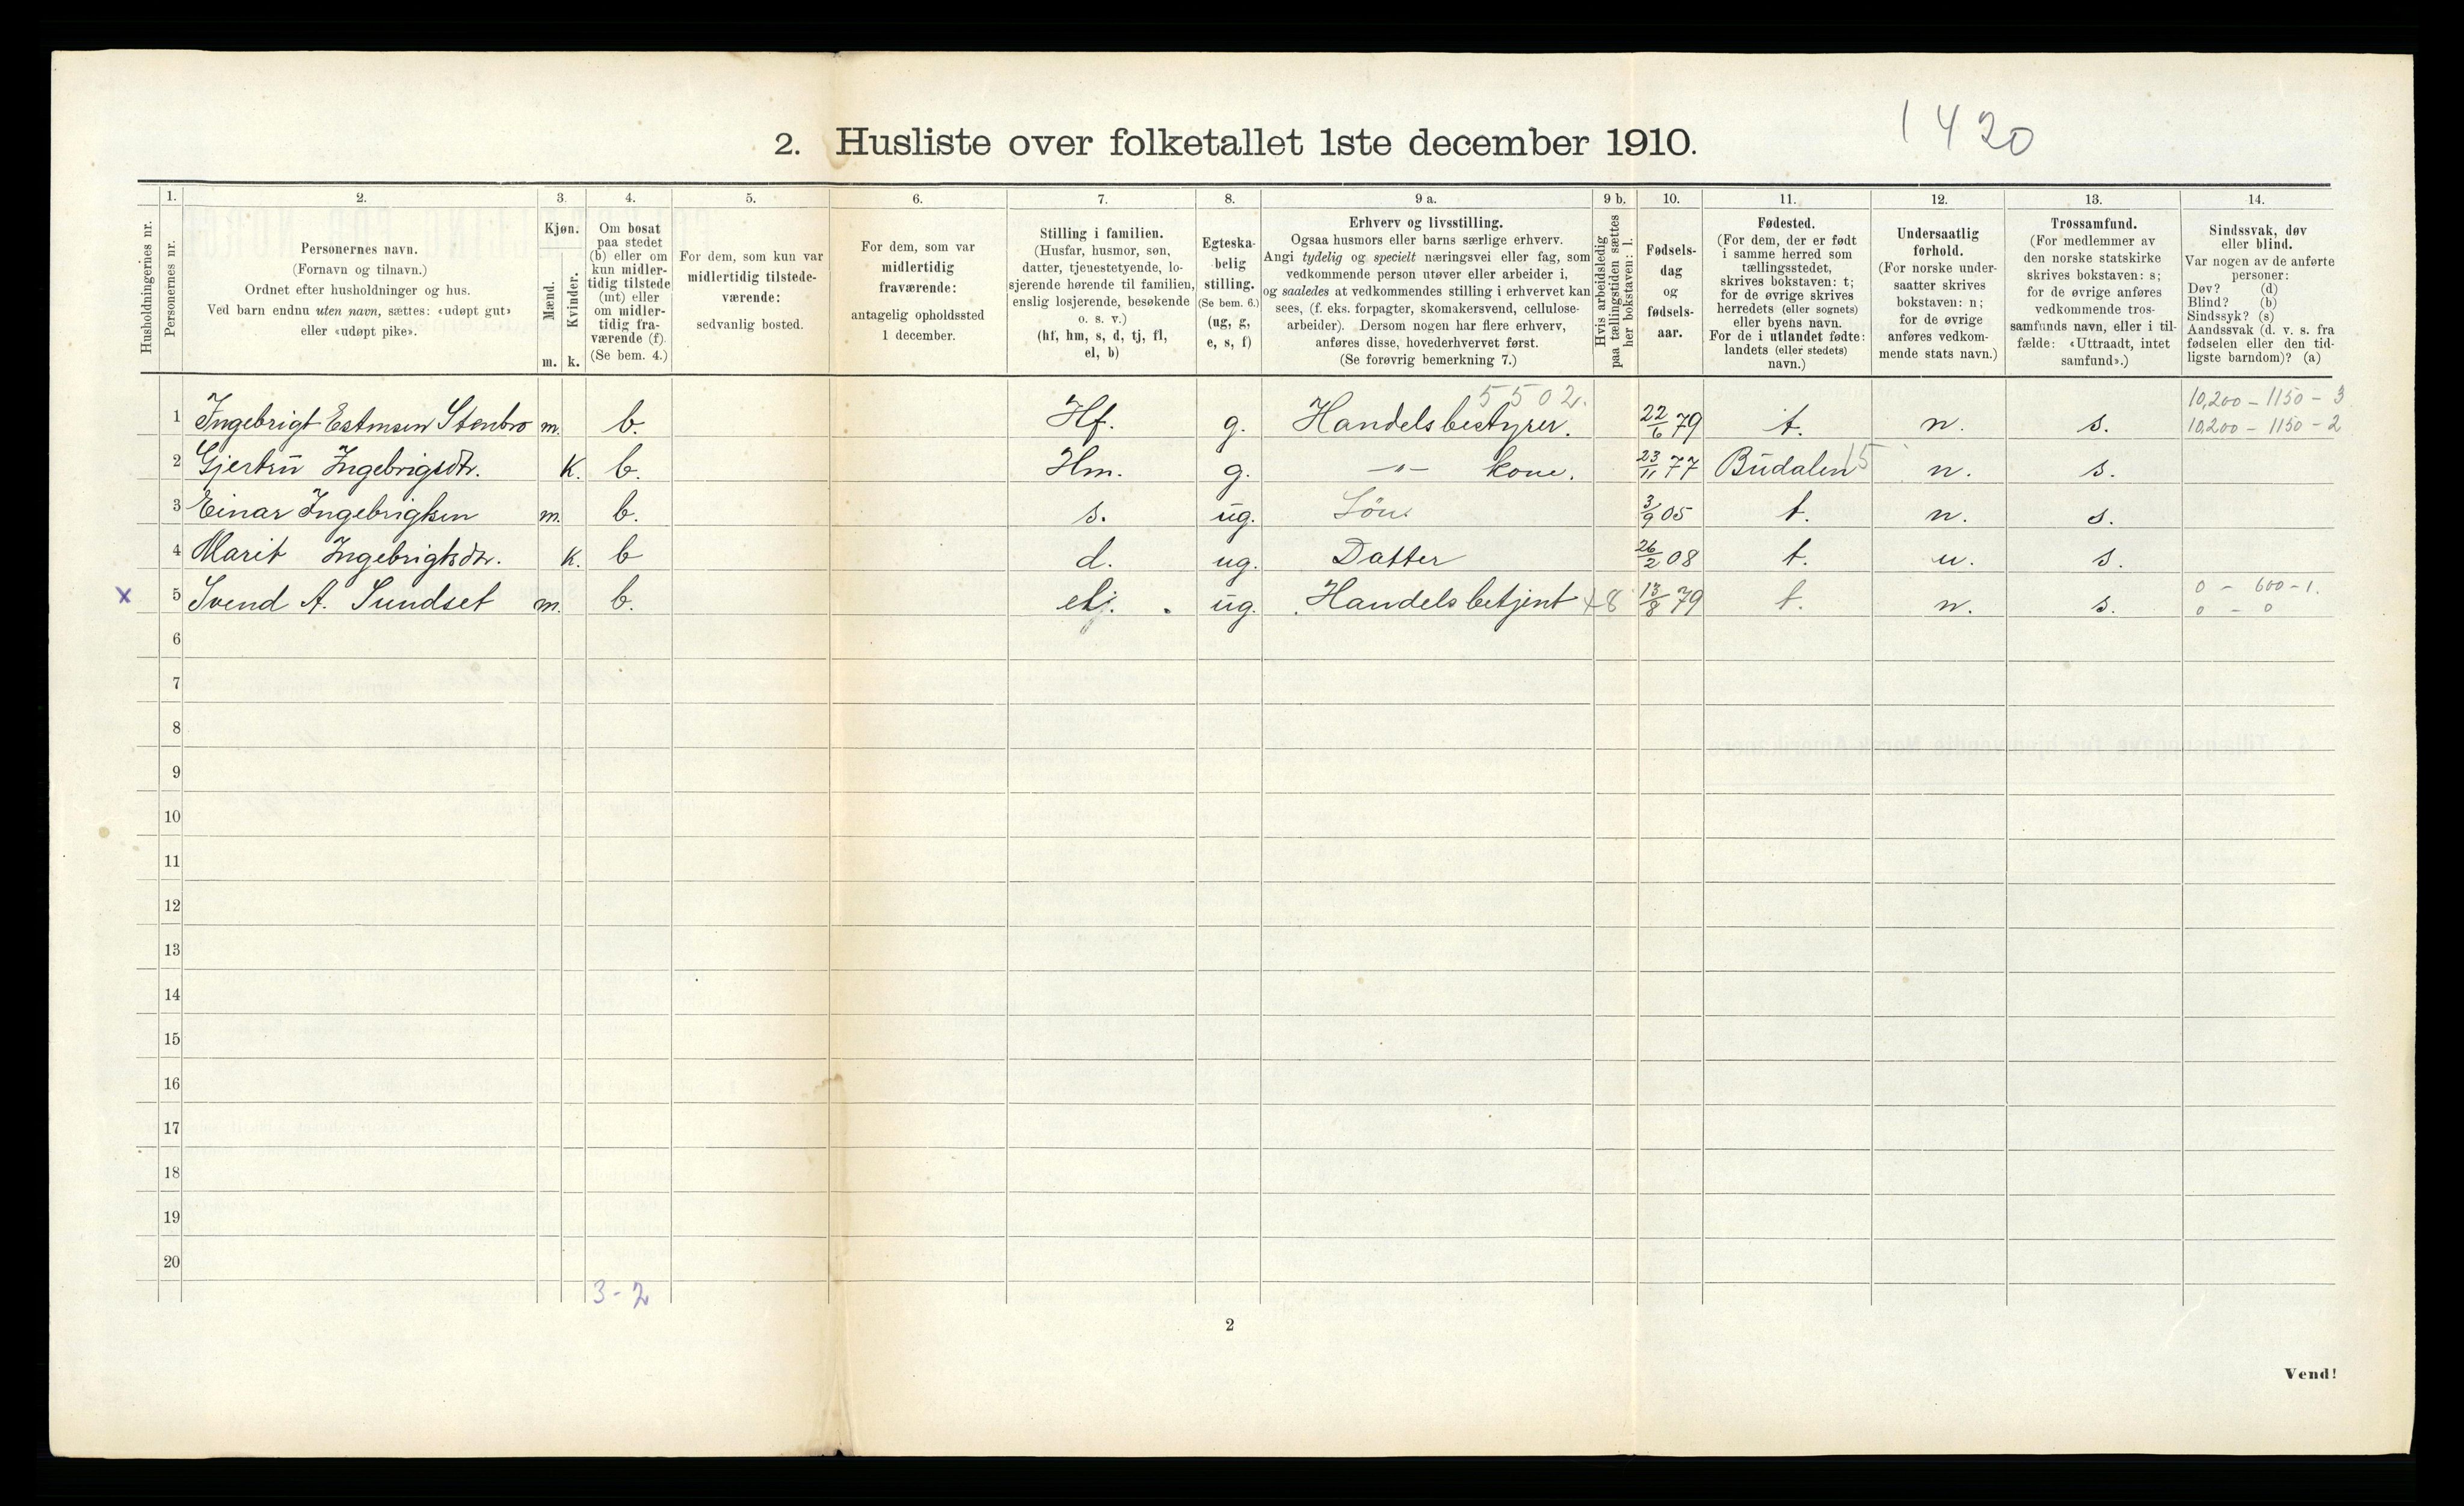 1420
2. Husliste over folketallet 1ste december 1910.
Husholdningernes nr.
1.
Personernes nr.
2.
Personernes navn.
(Fornavn og tilnavn.)
Ordnet efter husholdninger og hus.
Ved barn endnu uten navn, sættes: «udøpt gut»
eller «udøpt pike».
3.
Kjøn.
Mænd.
Kvinder.
m. k.
4.
Om bosat
paa stedet
(b) eller om
kun midler-
tidig tilstede
(mt) eller
om midler-
tidig fra-
værende (f).
(Se bem. 4.)
5.
For dem, som kun var
midlertidig tilstede-
værende:
sedvanlig bosted.
6.
For dem, som var
midlertidig
fraværende:
antagelig opholdssted
1 december.
7.
Stilling i familien.
(Husfar, husmor, søn,
datter, tjenestetyende, lo-
sjerende hørende til familien,
enslig losjerende, besøkende
o. s. v.)
(hf, hm, s, d, tj, fl,
el, b)
8.
Egteska-
belig
stilling.
(Se bem. 6.)
(ug, g,
e, s, f)
9 a.
Erhverv og livsstilling.
Ogsaa husmors eller barns særlige erhverv.
Angi tydelig og specielt næringsvei eller fag, som
vedkommende person utøver eller arbeider i,
og saaledes at vedkommendes stilling i erhvervet kan
sees, (f. eks. forpagter, skomakersvend, cellulose-
arbeider). Dersom nogen har flere erhverv,
anføres disse, hovederhvervet først.
(Se forøvrig bemerkning 7.)
9 b.
Hvis arbeidsledig
paa tællingstiden sættes
her bokstaven: l.
10.
Fødsels-
dag
og
fødsels-
aar.
11.
Fødested.
(For dem, der er født
i samme herred som
tællingsstedet,
skrives bokstaven: t;
for de øvrige skrives
herredets (eller sognets)
eller byens navn.
For de i utlandet fødte:
landets (eller stedets)
navn.)
12.
Undersaatlig
forhold.
(For norske under-
saatter skrives
bokstaven: n;
for de øvrige
anføres vedkom-
mende stats navn.)
13.
Trossamfund.
(For medlemmer av
den norske statskirke
skrives bokstaven: s;
for de øvrige anføres
vedkommende tros-
samfunds navn, eller i til-
fælde: «Uttraadt, intet
samfund».)
14.
Sindssvak, døv
eller blind.
Var nogen av de anførte
personer:
Døv? (d)
Blind? (b)
Sindssyk? (s)
Aandssvak (d. v. s. fra
fødselen eller den tid-
ligste barndom)? (a)
5502. 10,200 - 1150 - 3
1 Ingebrigt Estensen Stenbro m. b. Hf. g. Handelsbestyrer. 22/6 79 t. n. s. 10,200 - 1150 - 2
2 Gjertrū Ingebrigsdtr. K. b. Hm. g. -"- kone. 23/11 77 Būdalen 15 n. s.
3 Einar Ingebrigtsen m. b. s. ūg. Søn. 3/9 05 t. n. s.
4 Marit Ingebrigtsdtr. K. b d. ug. Datter 26/2 08 t. n. s.
0 - 600 - 1.
x 5 Svend A. Sundset m. b. ūg. Handelsbetjent +8 13/8 79 t. n. s. 0 - 0
6
7
8
9
10
11
12
13
14
15
16
17
18
19
20
3-2
2
Vend!